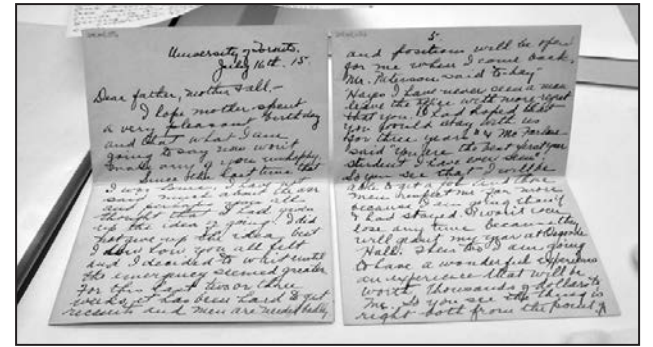 University of Toronto.
July 16th. 15.
Dear father, mother & all,—
I hope mother spent
a very pleasant birthday
and that what I am
going to say now won't
make any of you unhappy.
Since the last time that
I was home, I have not
said much about the war
and perhaps you all
thought that I had given
up the idea of going. I did
not give up the idea, but
I knew how you all felt
and I decided to wait until
the emergency seemed greater.
For this last two or three
weeks, it has been hard to get
recruits and men are needed badly
5.
and positions will be open
for me when I come back.
Mr. Paterson said to-day—
Hayes I have never seen a man
leave the office with more regret
that you. I had hoped that
you would stay with us
for three years" & Mr.
said "You are the best first year
student I have ever seen.
So you see that I will be
able to get a job and those
men respect me far more
because I am going than if
I had stayed. I won't even
lose any time because they
will grant my year at Osgoode
Hall. I am going
to have a wonderful experience
an experience that will be
worth thousands of dollars to
me. So you see the thing is
right both from the point of